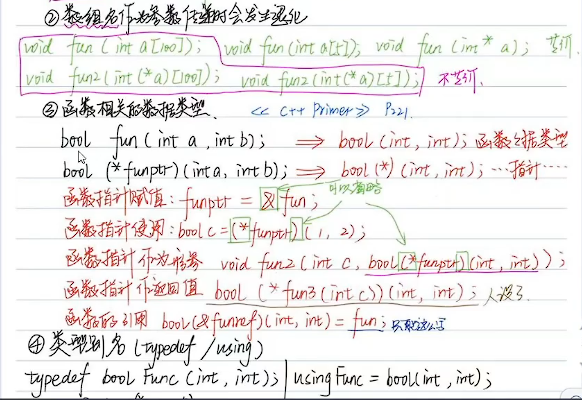 ② 数组名作为参数传递时会发生退化
void fun (int a[100]); void fun(int a[5]); void fun (int* a); 等价
void fun2(int(*a)[100]); void fun2(int(*a)[5]); 不等价.
③ 函数相关的数据类型. << C++ Primer >> P221.
bool fun(int a, int b); ⟹ bool(int, int); 函数数据类型
bool (*funptr)(int a, int b); ⟹ bool(*)(int, int); …指针……
函数指针赋值: funptr = & fun; 可以省略
函数指针使用: bool c = (*funptr)(1, 2);
函数指针作为形参 void fun2(int c, bool(*funptr)(int, int));
函数指针作返回值 bool (*fun3(int c))(int, int);
函数的引用 bool(&funref)(int, int) = fun; 只能这么写
④ 类型别名 (typedef / using)
typedef bool Func (int, int); | using Func = bool(int, int);